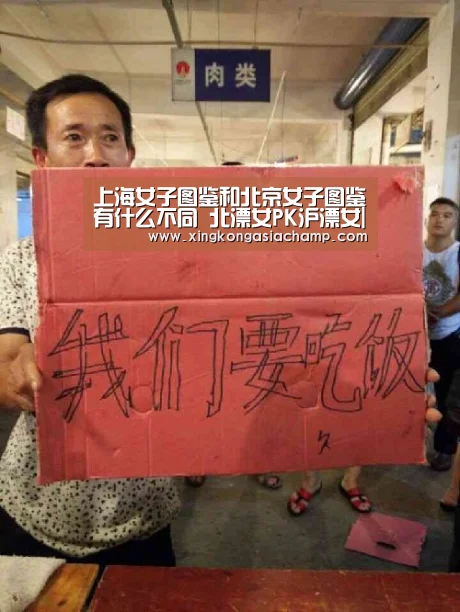 肉类
上海女子图鉴和北京女子图鉴
有什么不同 北漂女PK沪漂女|
www.xingkongasiachamp.com
我们要吃饭